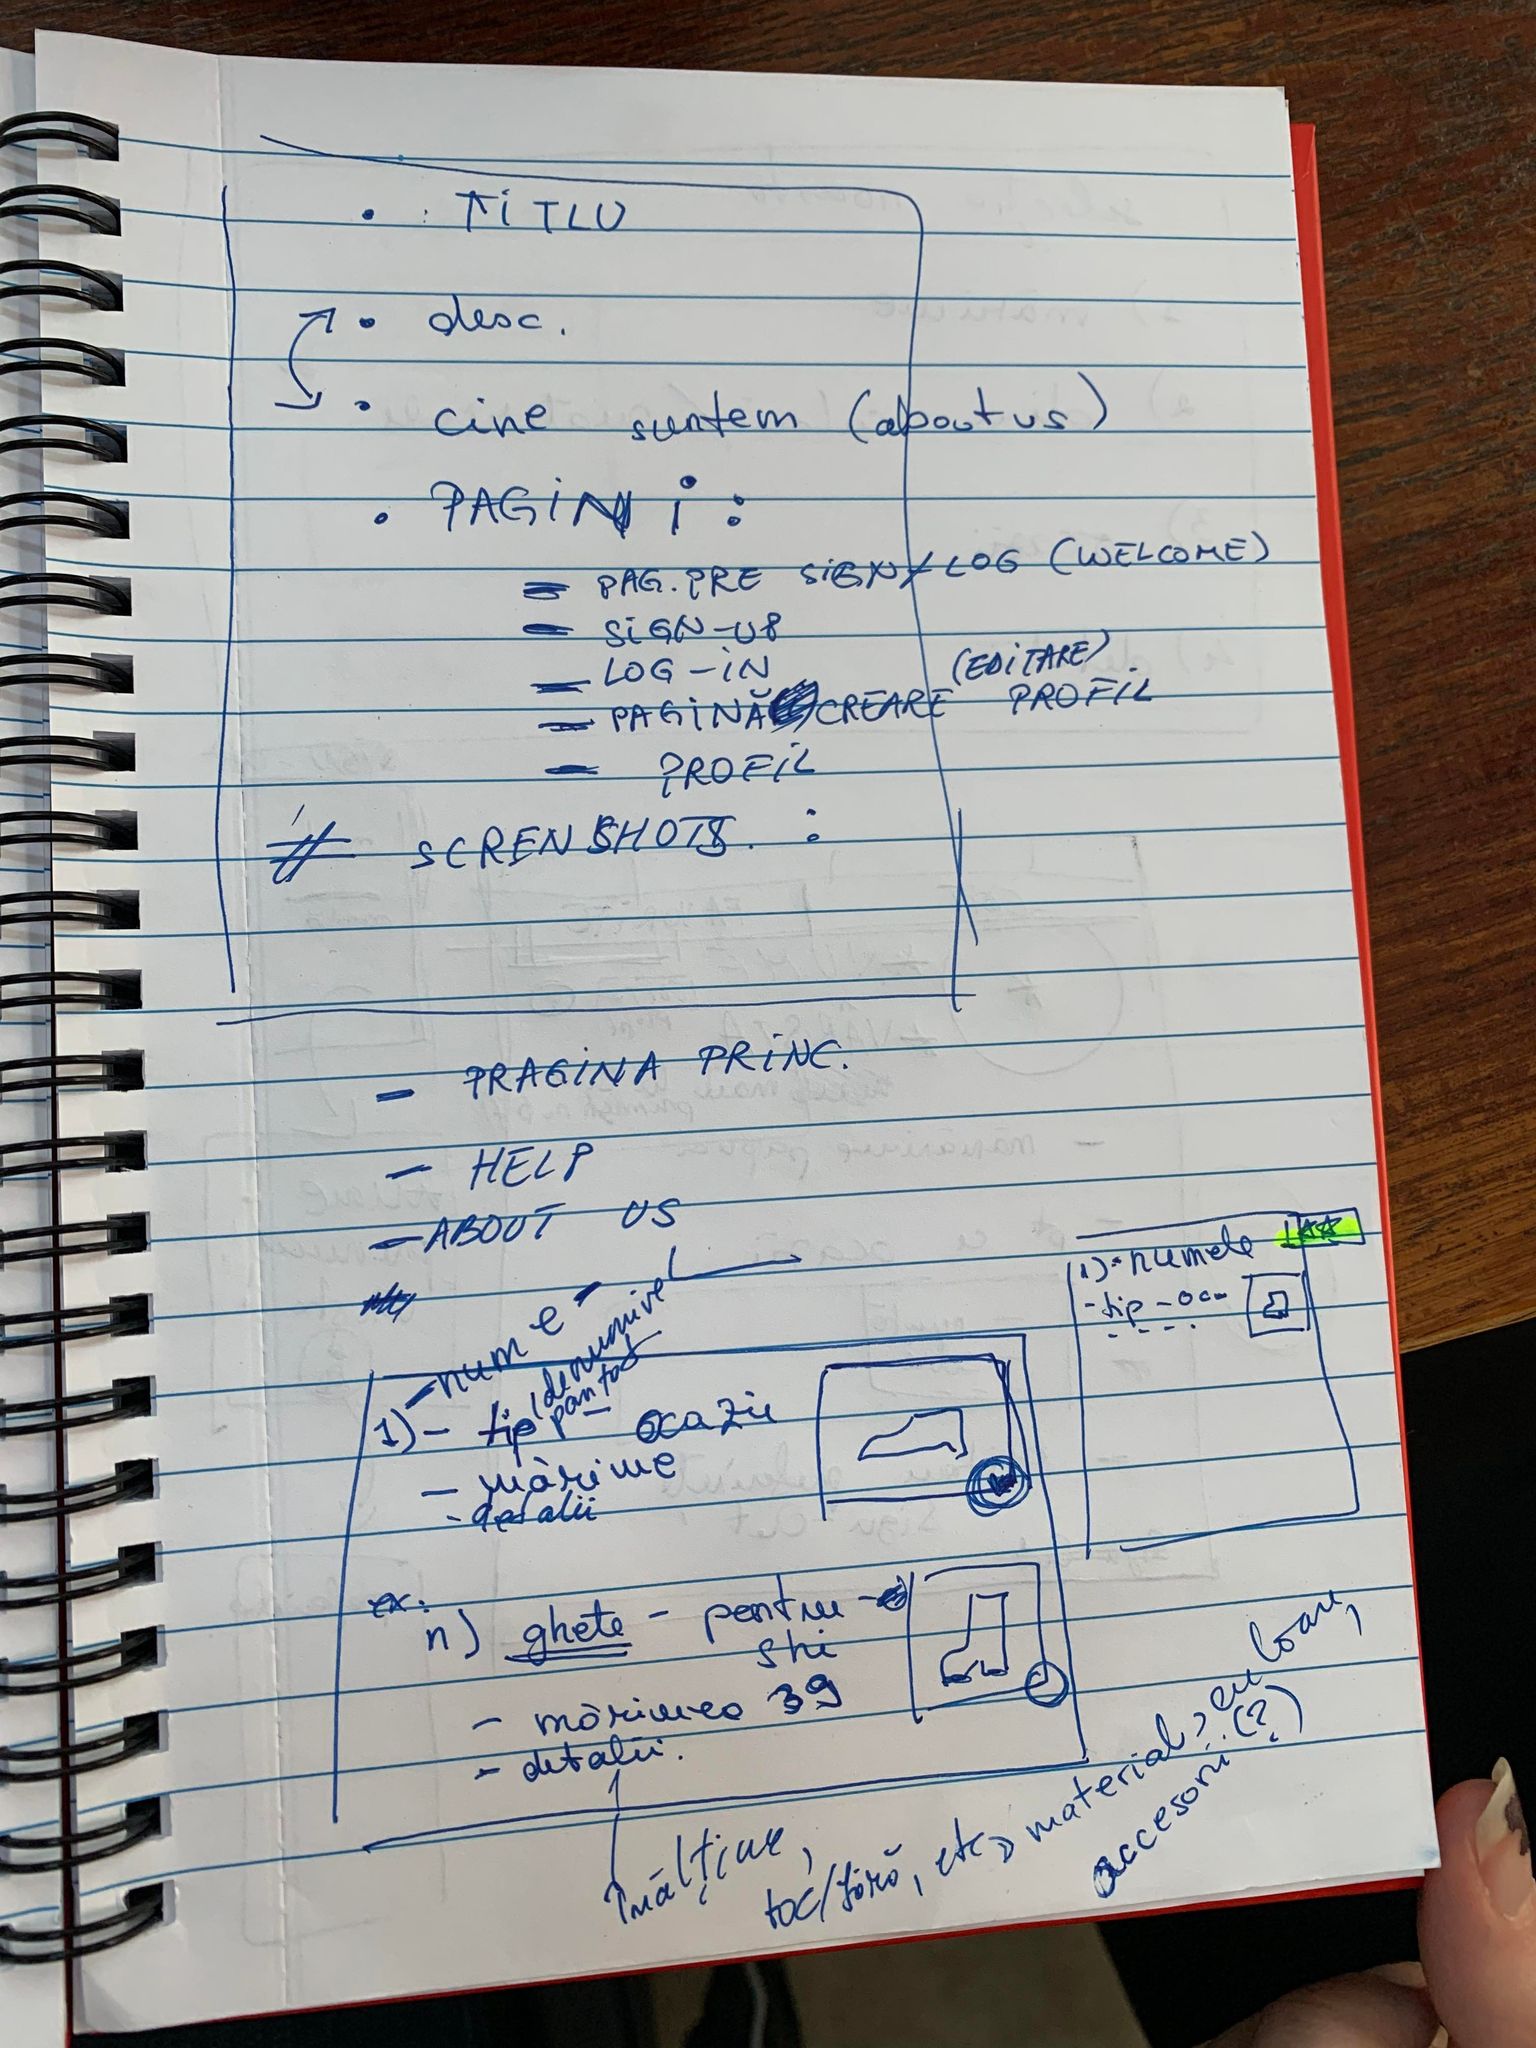 • TITLU
• desc.
• cine suntem (about us)
• PAGINI :
- PAG. PRE SIGN/LOG (WELCOME)
- SIGN-UP
- LOG-IN
(EDITARE)
- PAGINĂ CREARE PROFIL
- PROFIL
# SCRENSHOTS :
- PRAGINA PRINC.
- HELP
- ABOUT US
1) - numele
- tip - oca
- nume
(denumire
pantof
1) - tip - ocazie
- mărime
- detalii
ex.
n) ghete - pentru
ski
- mărimea 39
- detalii.
înălțime,
toc/fără, etc, material, cu toc,
accesorii (?)